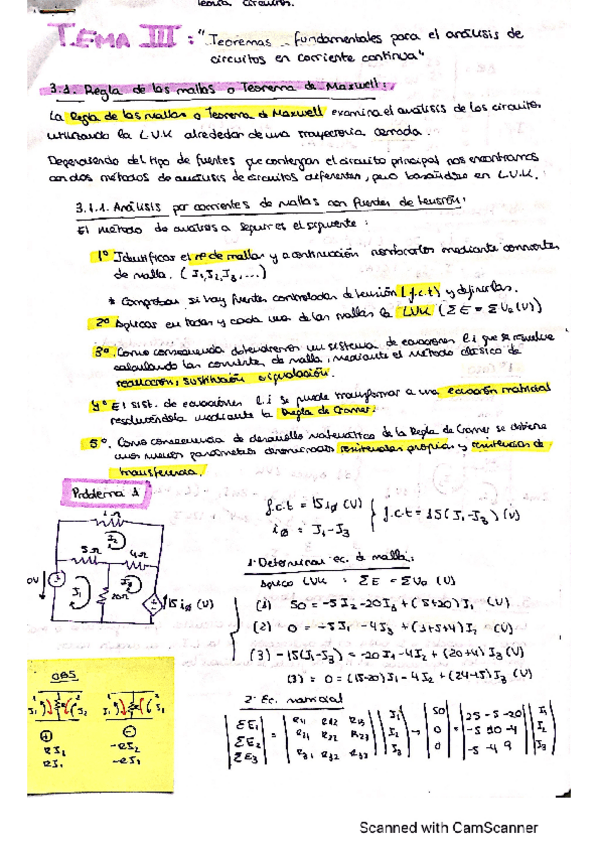 Teoría Circuitos.
TEMA III: "Teoremas fundamentales para el análisis de
circuitos en corriente continua"
3.1. Regla de las mallas o Teorema de Maxwell:
La Regla de las mallas o Teorema de Maxwell examina el análisis de los circuitos
utilizando la L.V.K alrededor de una trayectoria cerrada.
Dependiendo del tipo de fuentes que contengan el circuito principal nos encontramos
con dos métodos de análisis de circuitos diferentes, pero basándose en L.V.K.
3.1.1. Análisis por corrientes de mallas con fuentes de tensión:
El método de análisis a seguir es el siguiente:
1º Identificar el nº de mallas y a continuación nombrarlos mediante corrientes
de malla. (I1, I2, I3, ...)
* Comprobar si hay fuentes controladas de tensión (f.c.t) y definirlas.
2º Aplicar en todas y cada una de las mallas la LVK (ΣE = ΣVΩ (V))
3º Como consecuencia obtendremos un sistema de ecuaciones l.i que se resuelve
calculando las corrientes de malla, mediante el método clásico de
reducción, sustitución o igualación.
4º El sist. de ecuaciones l.i se puede transformar a una ecuación matricial
resolviéndola mediante la Regla de Cramer.
5º. Como consecuencia de desarrollo matemático de la Regla de Cramer se obtiene
unos nuevos parámetros denominados resistencias propias y resistencias de
transferencia.
Problema 1
f.c.t = 15 iø (V)
iø = I1-I3
f.c.t = 15(I1-I3) (V)
1Ω
I2
5Ω
4Ω
0V
I1
20Ω
I3
15 iø (V)
1. Determinar ec. de malla:
Aplico LVK : ΣE = ΣVΩ (V)
(1) 50 = -5I2 -20I3 + (5+20)I1 (V)
(2) 0 = -5I1 -4I3 + (1+5+4)I2 (V)
(3) -15(I1-I3) = -20I1 -4I2 + (20+4)I3 (V)
(3) = 0 = (15-20)I1 - 4I2 + (24-15)I3 (V)
OBS
1 2 1 2
I1 R I2 I1 R I2
⊕ ⊖
RI1 -RI2
RI2 -RI1
2. Ec. matricial
ΣE1 R11 R12 R13 I1 50 25 -5 -20 I1
ΣE2 = R21 R22 R23 I2 → 0 = -5 10 -4 I2
ΣE3 R31 R32 R33 I3 0 -5 -4 9 I3
Scanned with CamScanner